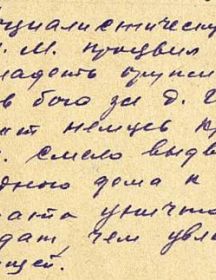 оциалистическу
. М. проявил
ладеть оружи
в бою за д. Г
ит немцев к
. смело выдв
дного дома к
ката уничто
дат, чем увле
ищей.